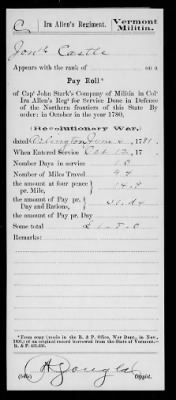 C | Ira Allen's Regiment. | Vermont
Militia.
Jonᵃ Castle
Appears with the rank of on a
Pay Roll*
of Capᵗ John Stark's Company of Militia in Colº
Ira Allen's Regᵗ for Service Done in Defence
of the Northern frontiers of this State By
order; in October in the year 1780,
(Revolutionary War.)
dated Arlington June 4, 1781.
When Entered Service Oct 12, 17
Number Days in service
Number of Miles Travel 44
the amount at four pence
pr. Mile, 14.8
the amount of Pay pr.
Day and Rations,
Some total £
Remarks:
*From copy (made in the R. & P. Office, War Dept., in Nov.,
of an original record borrowed from the State of Vermont.—
R. & P.
A Douglas
Copyist.